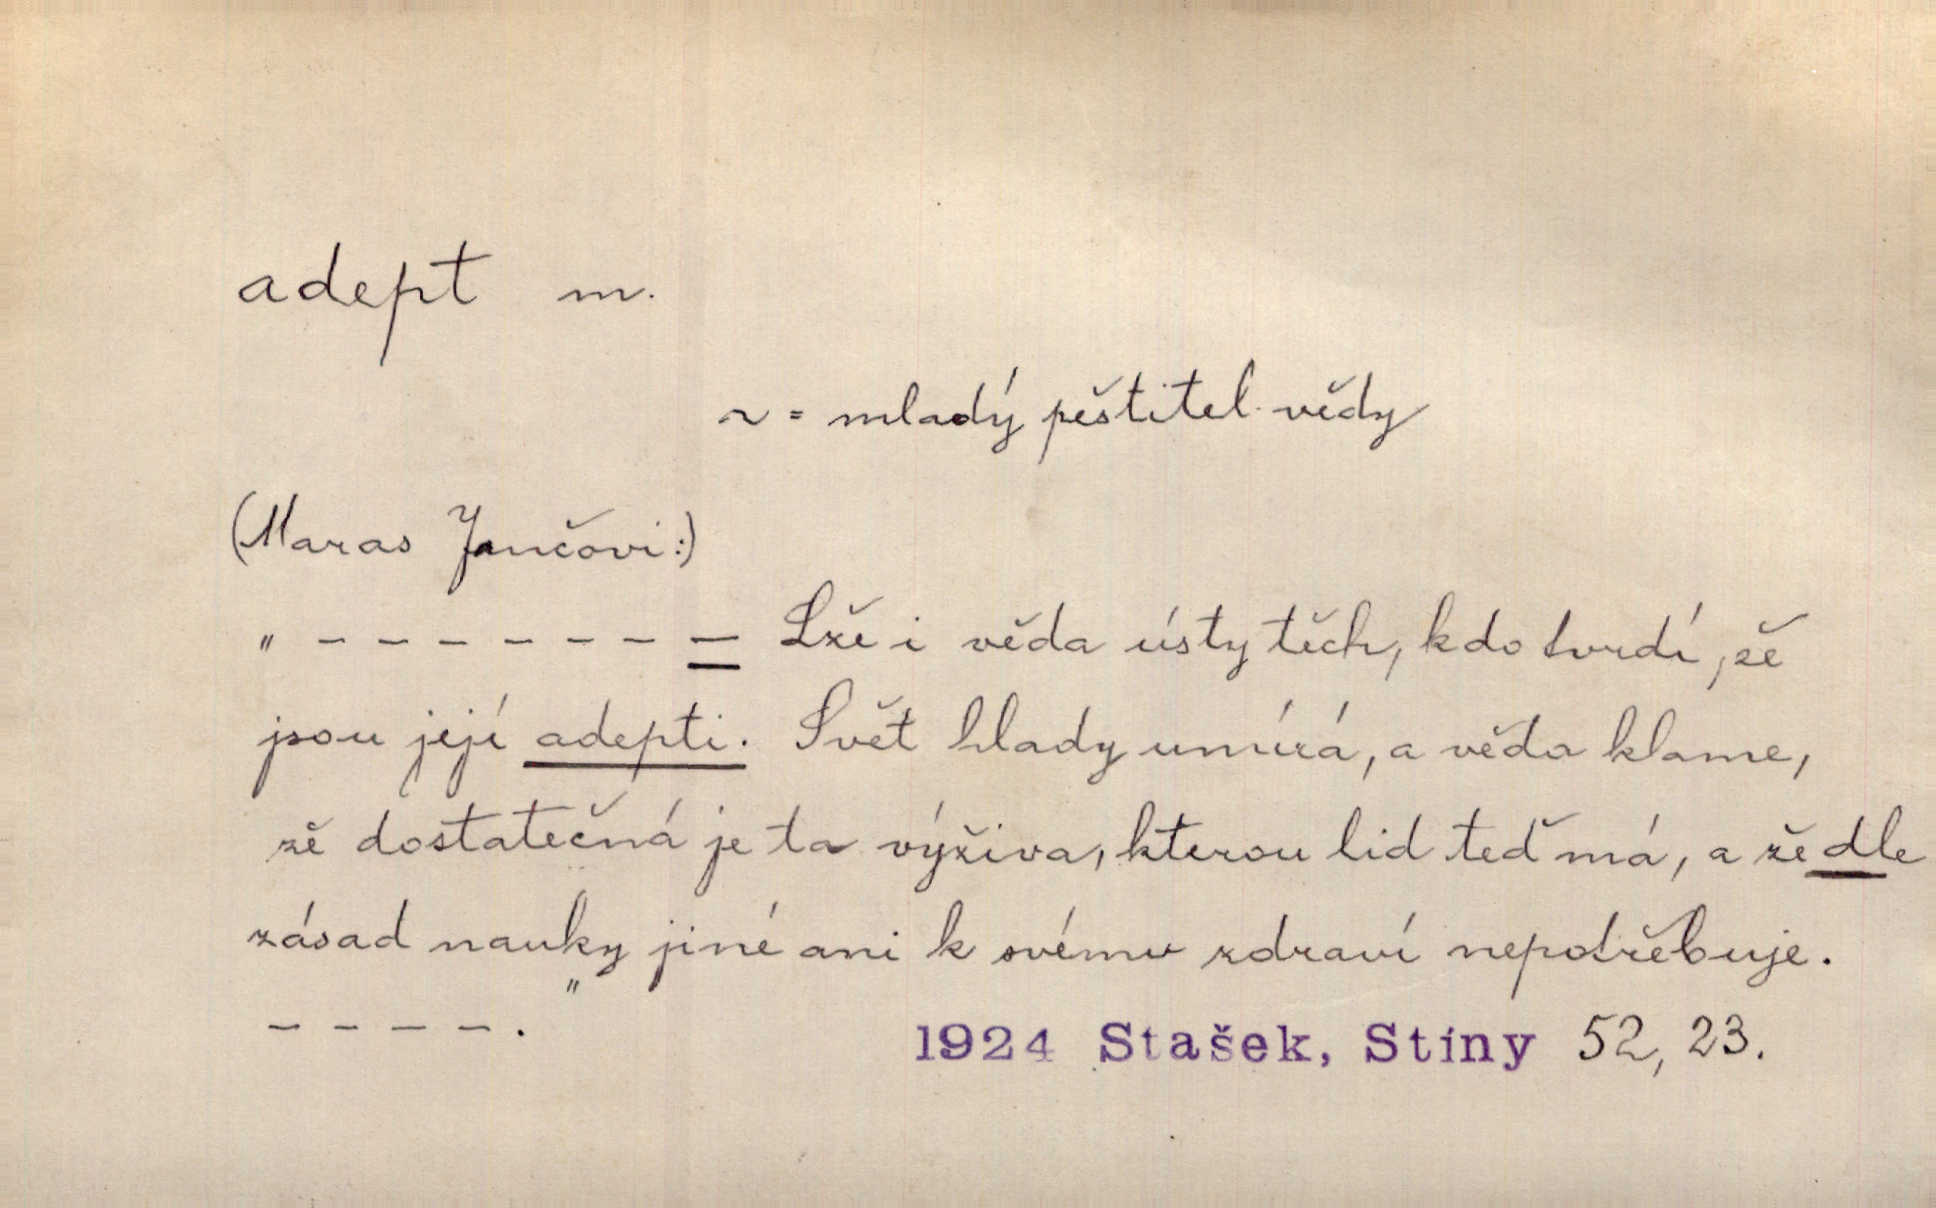 adept m.
~ = mladý pěštitel vědy
(Maras Jančovi:)
„ - - - - - - - — Lže i věda ústy těch, kdo tvrdí, že
jsou její adepti. Svět hlady umírá, a věda klame,
že dostatečná je ta výživa, kterou lid teď má, a že dle
zásad nauky jiné ani k svému zdraví nepotřebuje.
- - - - . "
1924 Stašek, Stíny 52, 23.